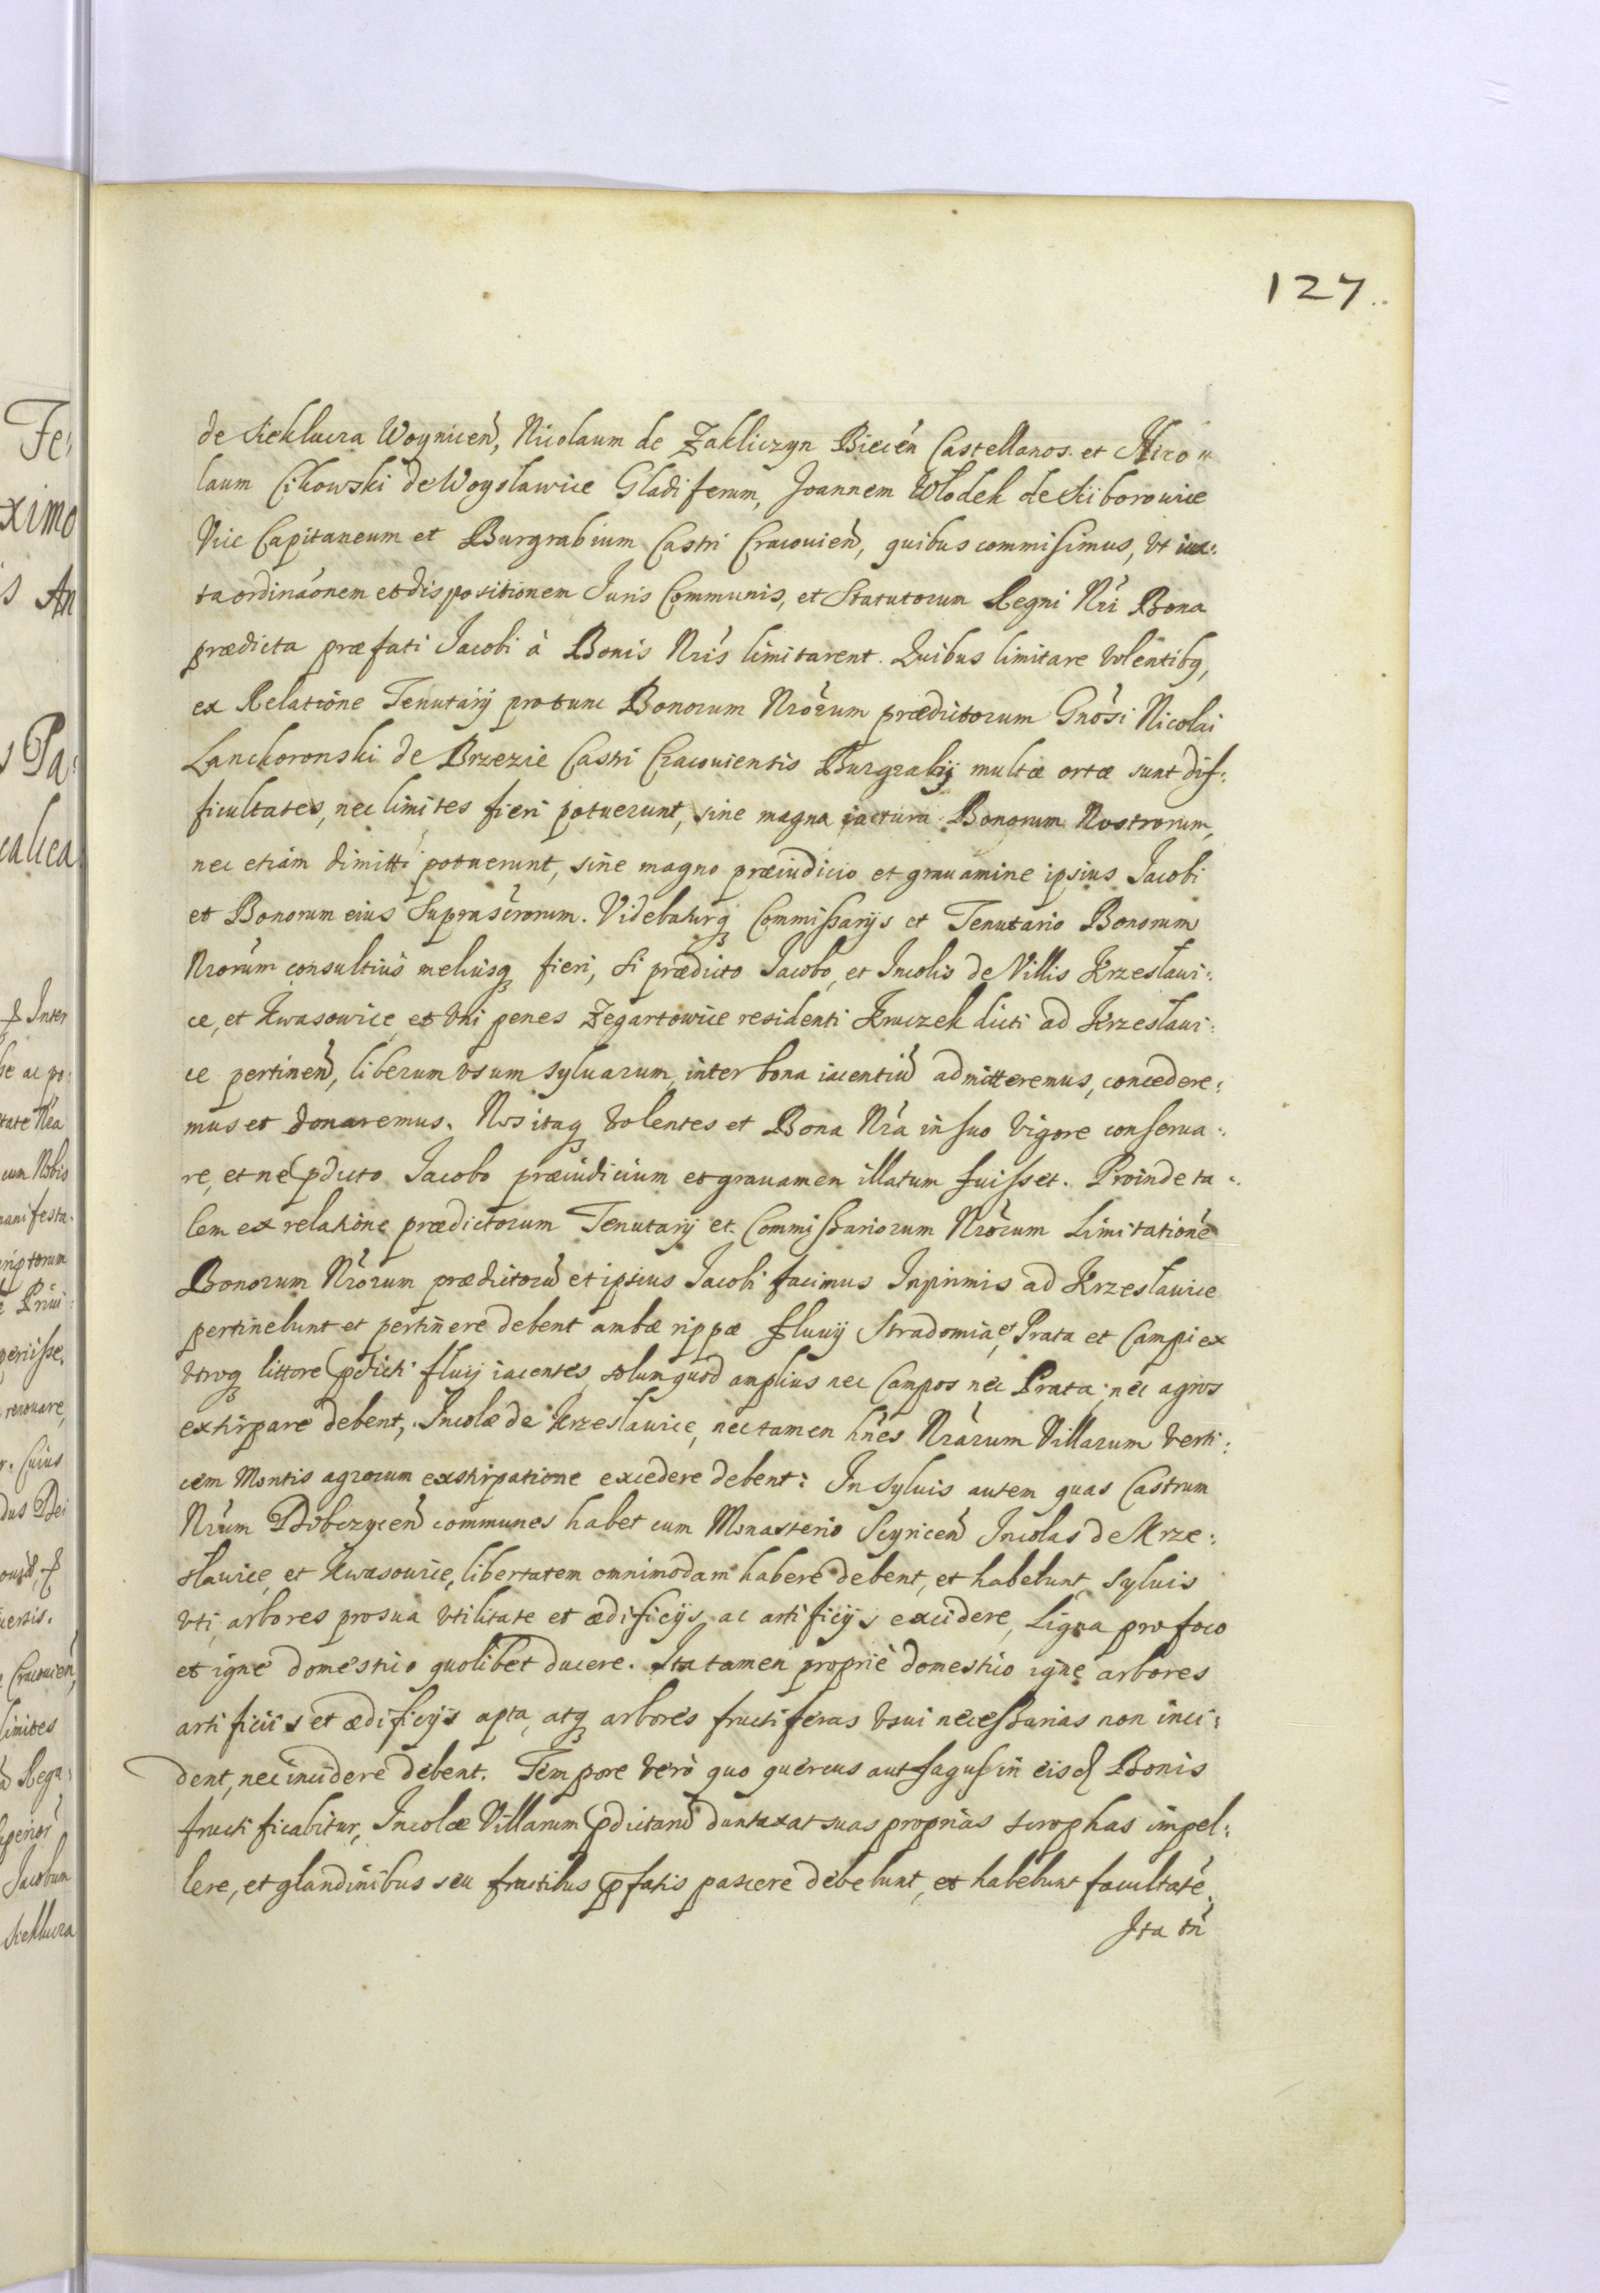 127.
de Siekluera Woynicen, Nicolaum de Zakliczyn Biecen Castellanos et Nico
laum Cikowski de Woyslawice Gladiferum, Joannem Wlodek de Siborowice
Vice Capitaneum et Burgrabium Castri Cracovien, quibus commisimus, vt iux:
ta ordinaonem et dispositionem Juris Communis, et Statutorum Regni Nri Bona
prædicta præfati Jacobi à Bonis Nris limitarent. Quibus limitare volentibq,
ex Relatione Tenutarij protunc Bonorum Nrorum prædictorum Gnosi Nicolai
Lanckoronski de Brzezie Castri Cracouiensis Burgrabij multæ ortæ sunt dif:
ficultates, nec limites fieri potuerunt, sine magna iactura Bonorum Nostrorum,
nec etiam dimitti potuerunt, sine magno præiudicio et grauamine ipsius Jacobi
et Bonorum eius Suprascrorum. Videbaturq Commissarijs et Tenutario Bonorum
Nrorum consultius meliusq fieri, si prædicto Jacobo, et Incolis de Villis Krzeslaui:
ce, et Kwasowice, et Vni penes Zegartowice residenti Kruczek dicti ad Krzeslaui:
ce pertinen, liberum vsum syluarum, inter bona iacentiu admitteremus, concedere:
mus et donaremus. Nos itaq volentes et Bona Nra in suo vigore conserua:
re, et ne pdicto Jacobo præiudicium et grauamen illatum fuisset. Proinde ta:
lem ex relatione prædictorum Tenutarij et Commissariorum Nrorum Limitatione
Bonorum Nrorum prædictoru et ipsius Jacobi facimus Inprimis ad Krzeslauice
pertinebunt et pertinere debent ambæ rippæ fluuij Stradomia, et Prata et Campi ex
vtroq littore pdicti fluij iacentes, solumquod amplius nec Campos nec Prata, nec agros
extirpare debent, Incolæ de Krzeslauice, nec tamen hnes Nrarum Villarum verti:
cem Montis agrorum exstirpatione excedere debent: In syluis autem quas Castrum
Nrum Dobczycen communes habet cum Monasterio Scyricen Incolas de Krze:
slauice, et Kwasouice, libertatem omnimodam habere debent, et habebunt, syluis
vti, arbores pro sua vtilitate et ædificijs, ac artificijs excidere, Ligna pro foco
et igne domestico quolibet ducere. Ita tamen proprie domestico igne arbores
artificiis et ædificijs apta, atq arbores fructiferas vsui necessarias non inci:
dent, nec incidere debent. Tempore verò quo quercus aut fagus in eisd Bonis
fructificabitur, Incolæ Villarum pdictaru duntaxat suas proprias scrophas impel:
lere, et glandinibus seu fructibus pfatis pascere debebunt, et habebunt facultate
Ita tn